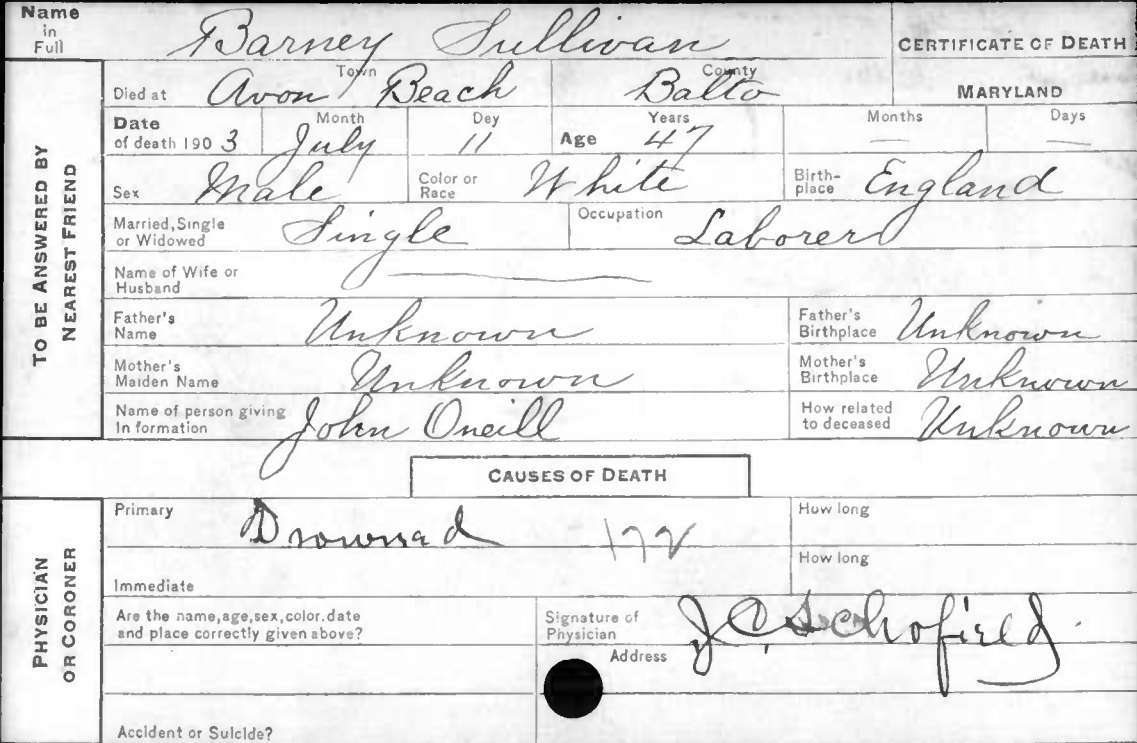 Name in Full Barney Sullivan CERTIFICATE OF DEATH
TO BE ANSWERED BY NEAREST FRIEND
Died at Avon Beach Town Balto County MARYLAND
Date of death 1903 Month July Dey 11 Age Years 47 Months — Days —
Sex Male Color or Race White Birth-place England
Married, Single or Widowed Single Occupation Laborer
Name of Wife or Husband —
Father's Name Unknown Father's Birthplace Unknown
Mother's Maiden Name Unknown Mother's Birthplace Unknown
Name of person giving In formation John Oneill How related to deceased Unknown
CAUSES OF DEATH
PHYSICIAN OR CORONER
Primary Drowned 172 How long
Immediate How long
Are the name, age, sex, color. date and place correctly given above? Signature of Physician J C Schofield
Address
Accident or Suicide?